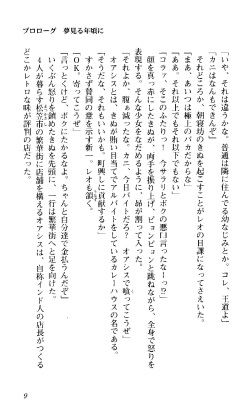 プロローグ　夢見る年頃に
「いや、それは違うかな。普通は隣に住んでる幼なじみとか。コレ、王道よ」
「カニはなんもできんぞ」
「まあ、あいつは極上のバカだからな」
それどころか、朝寝坊のきぬを起こすことがレオの日課になってさえいた。
「ああ。それ以上でもそれ以下でもない」
「コラッ、そこのふたり！　今サラリとボクの悪口言ったなーっ!?」
顔を真っ赤にしたきぬが、両手を振り上げ、ピョンピョンと跳ねながら、全身で怒りを
表現する。そんな少女をなだめるように、昴が割って入った。
「それよか、腹ぁ減らない？　今日バイトだろ？　オアシスで喰ってこうぜ」
オアシスとは、きぬが賄い目当てでアルバイトをしているカレーハウスの名である。
「オアシスもいいけどよ。町興しに貢献するか」
すかさず賛同の意を示す新一。レオも頷く。
「OK。寄ってこうぜ」
「言っとくけど、ボクにたかるなよ。ちゃんと自分達で金払うんだぞ」
いくぶん怒りを鎮めたきぬを先頭に、一行は繁華街へと足を向けた。
4人が暮らす松笠市の繁華街に店舗を構えるオアシスは、自称インド人の店長がつくる
どこかレトロな味が評判の店だった。
9